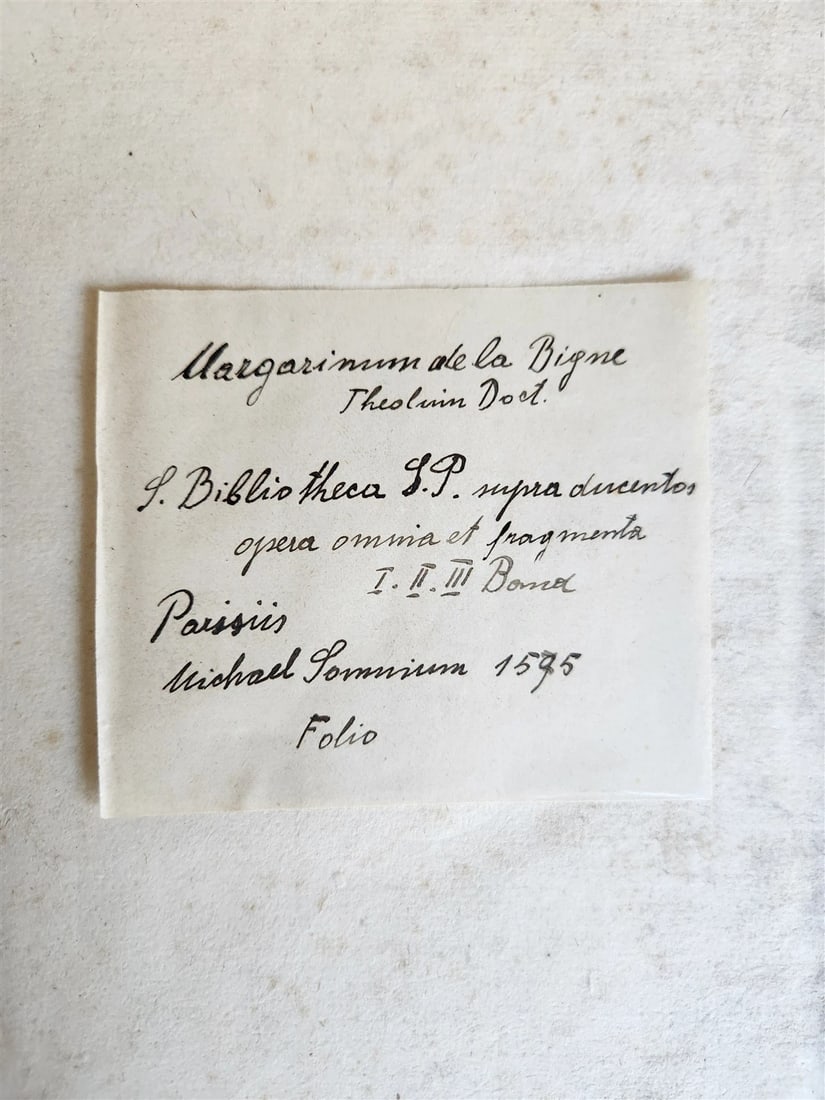 Margarinum de la Bigne
Theolium Doct.
S. Bibliotheca S.P. supra ducentos
opera omnia et fragmenta
I. II. III Band
Parisiis
Michael Somnium 1595
Folio